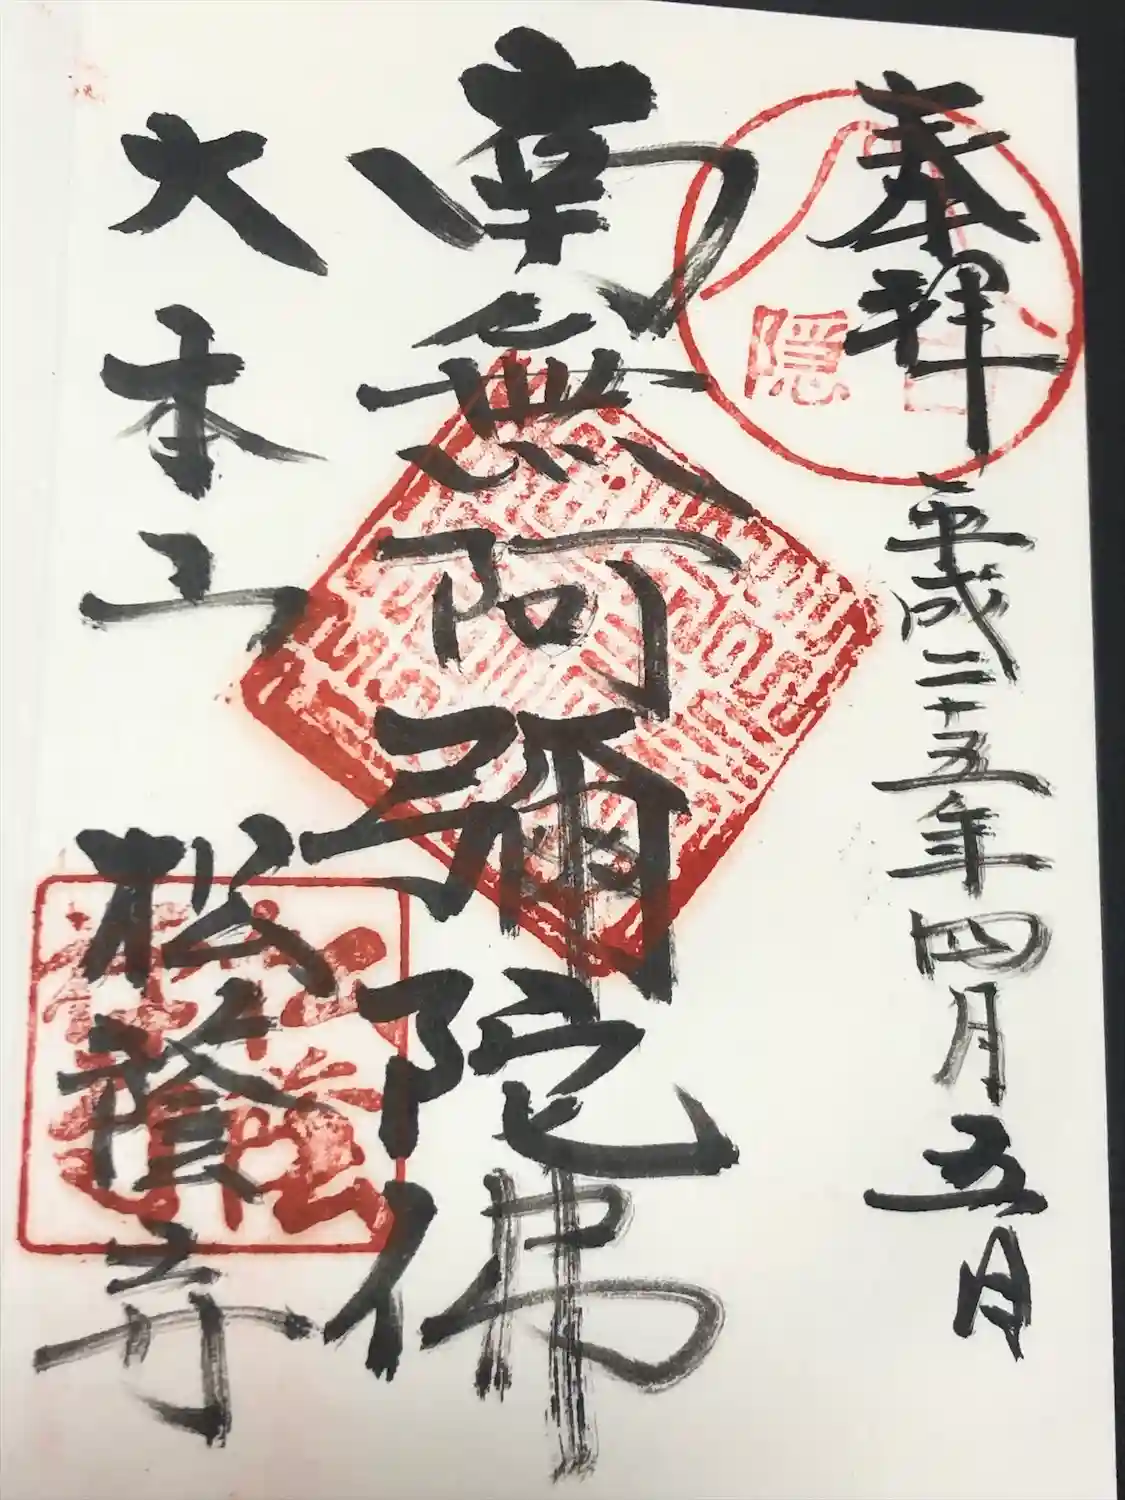 奉拝
平成二十五年四月五日
南無阿彌陀佛
大本山
松蔭寺
隠